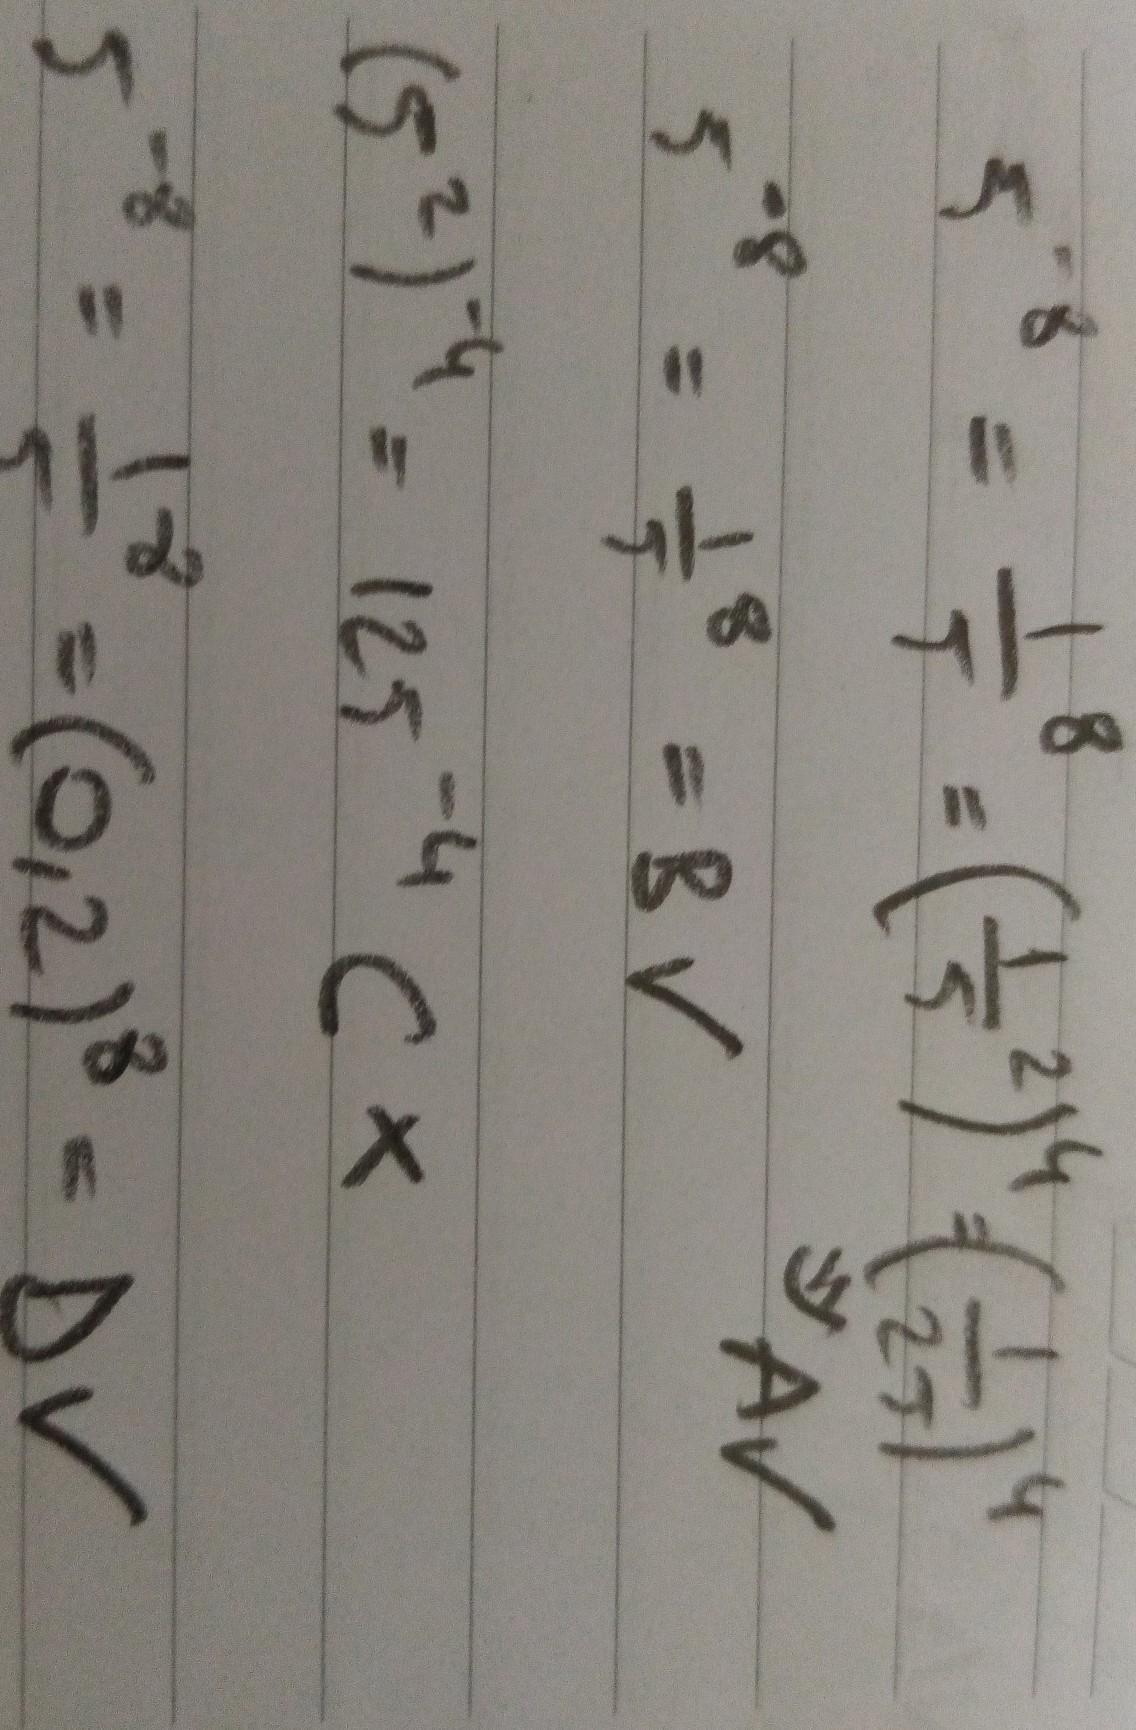 5⁻⁸ = 1/5⁸ = (1/5²)⁴ = (1/25)⁴
A✓
5⁻⁸ = 1/5⁸ = B✓
(5²)⁻⁴ = 125⁻⁴ C ×
5⁻⁸ = 1/5⁸ = (0,2)⁸ = D✓